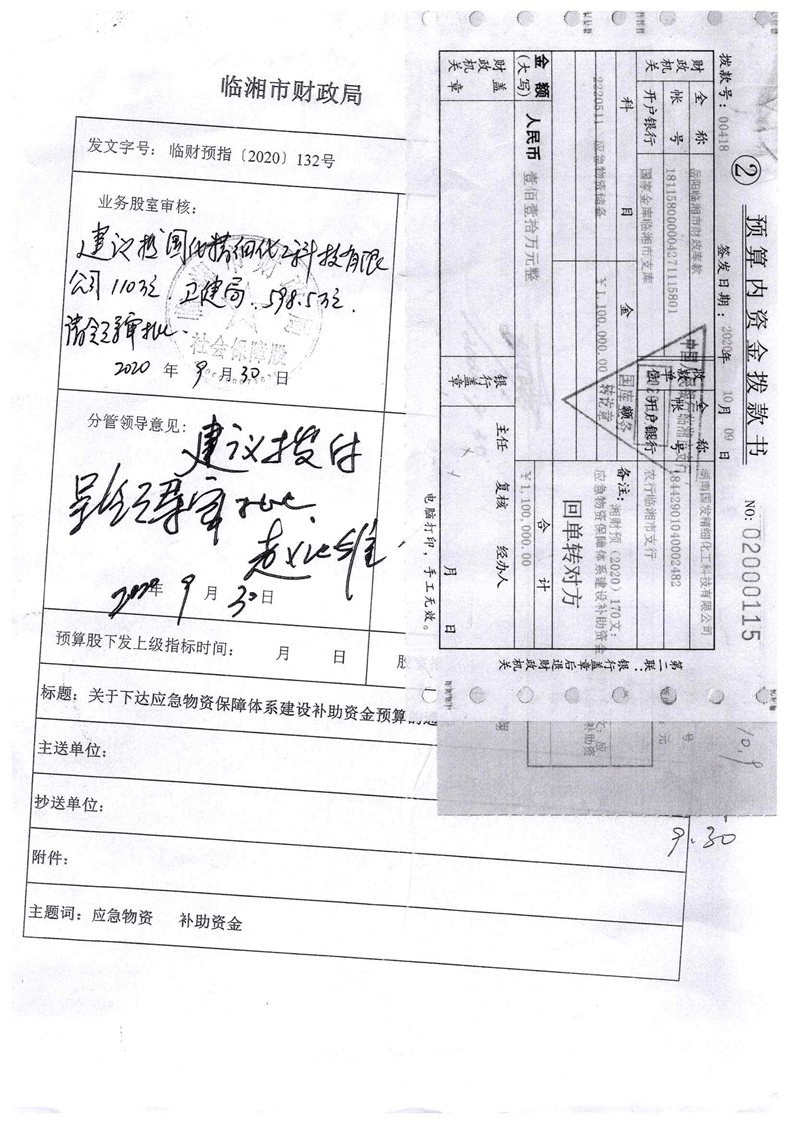 临湘市财政局
发文字号：临财预指〔2020〕132号
业务股室审核：
建议拨国发精细化工科技有限
公司110万 卫健局 598.5万.
请领导审批.
社会保障股
2020 年 9 月 30 日
分管领导意见：
建议拨付
呈领导审批.
2020年 9 月 30 日
预算股下发上级指标时间： 月 日
标题：关于下达应急物资保障体系建设补助资金预算的通
主送单位：
抄送单位：
附件：
主题词：应急物资 补助资金
② 预算内资金拨款书
NO: 02000115
拨款号：00418
签发日期：2020年 10月 09日
财政机关
全称 岳阳临湘市财政库款
帐号 181158000004271115801
开户银行 国家金库临湘市支库
收款单位
全称 湖南国发精细化工科技有限公司
帐号 18442901040002482
开户银行 农行临湘市支行
科目 金额
2220511 应急物资储备 ￥1,100,000.00
转讫章
备注：湘财预（2020）170文：
应急物资保障体系建设补助资金
回单转对方
合计
￥1,100,000.00
金额（大写） 人民币 壹佰壹拾万元整
财政机关盖章
银行盖章
主任 复核 经办人
月 日
电脑打印，手工无效。
第二联：银行盖章后退财政机关
10.9
9.30